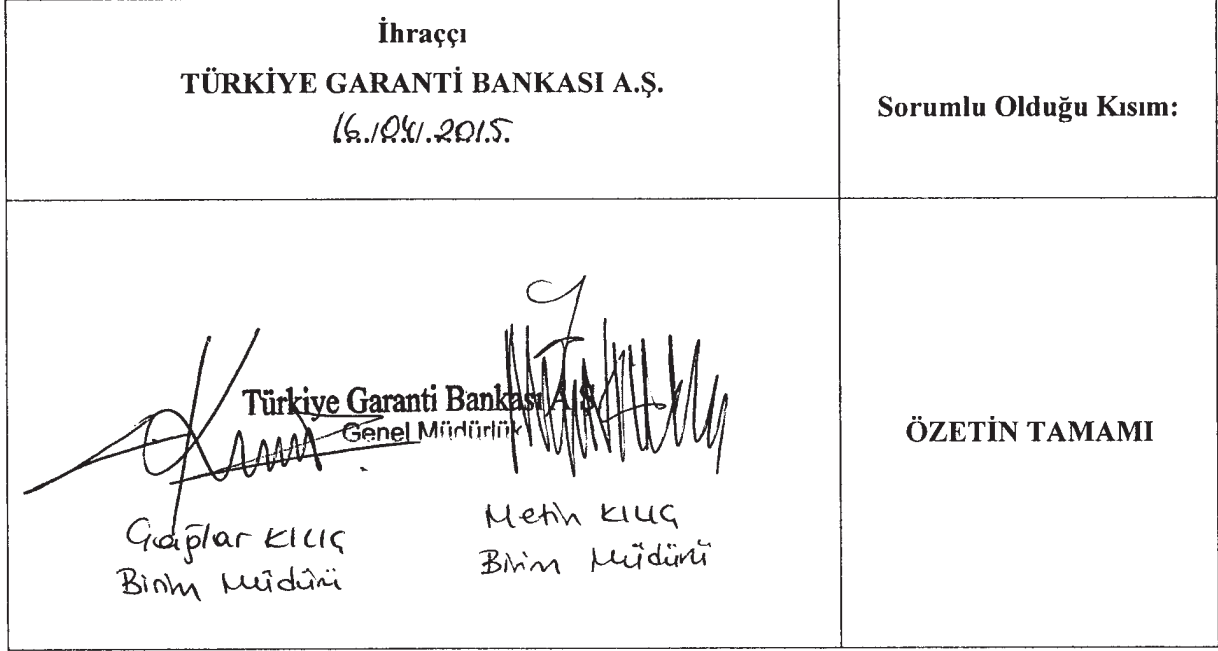 İhraççı
TÜRKİYE GARANTİ BANKASI A.Ş.
16./04/.2015.
Sorumlu Olduğu Kısım:
Türkiye Garanti Bankası A.Ş.
Genel Müdürlük
ÖZETİN TAMAMI
Çağlar KILIÇ
Birim Müdürü
Metin KILIÇ
Birim Müdürü